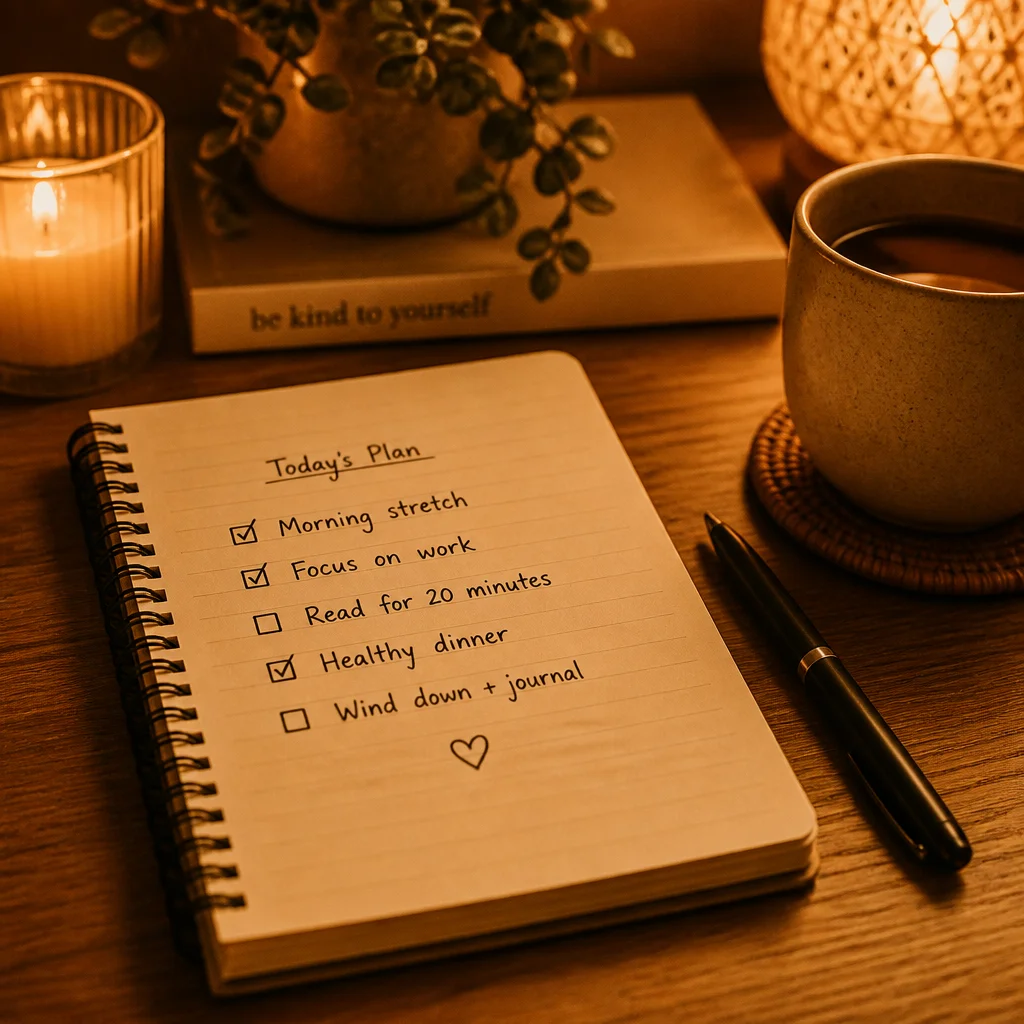 be kind to yourself
Today's Plan
☑ Morning stretch
☑ Focus on work
☐ Read for 20 minutes
☑ Healthy dinner
☐ Wind down + journal
♡